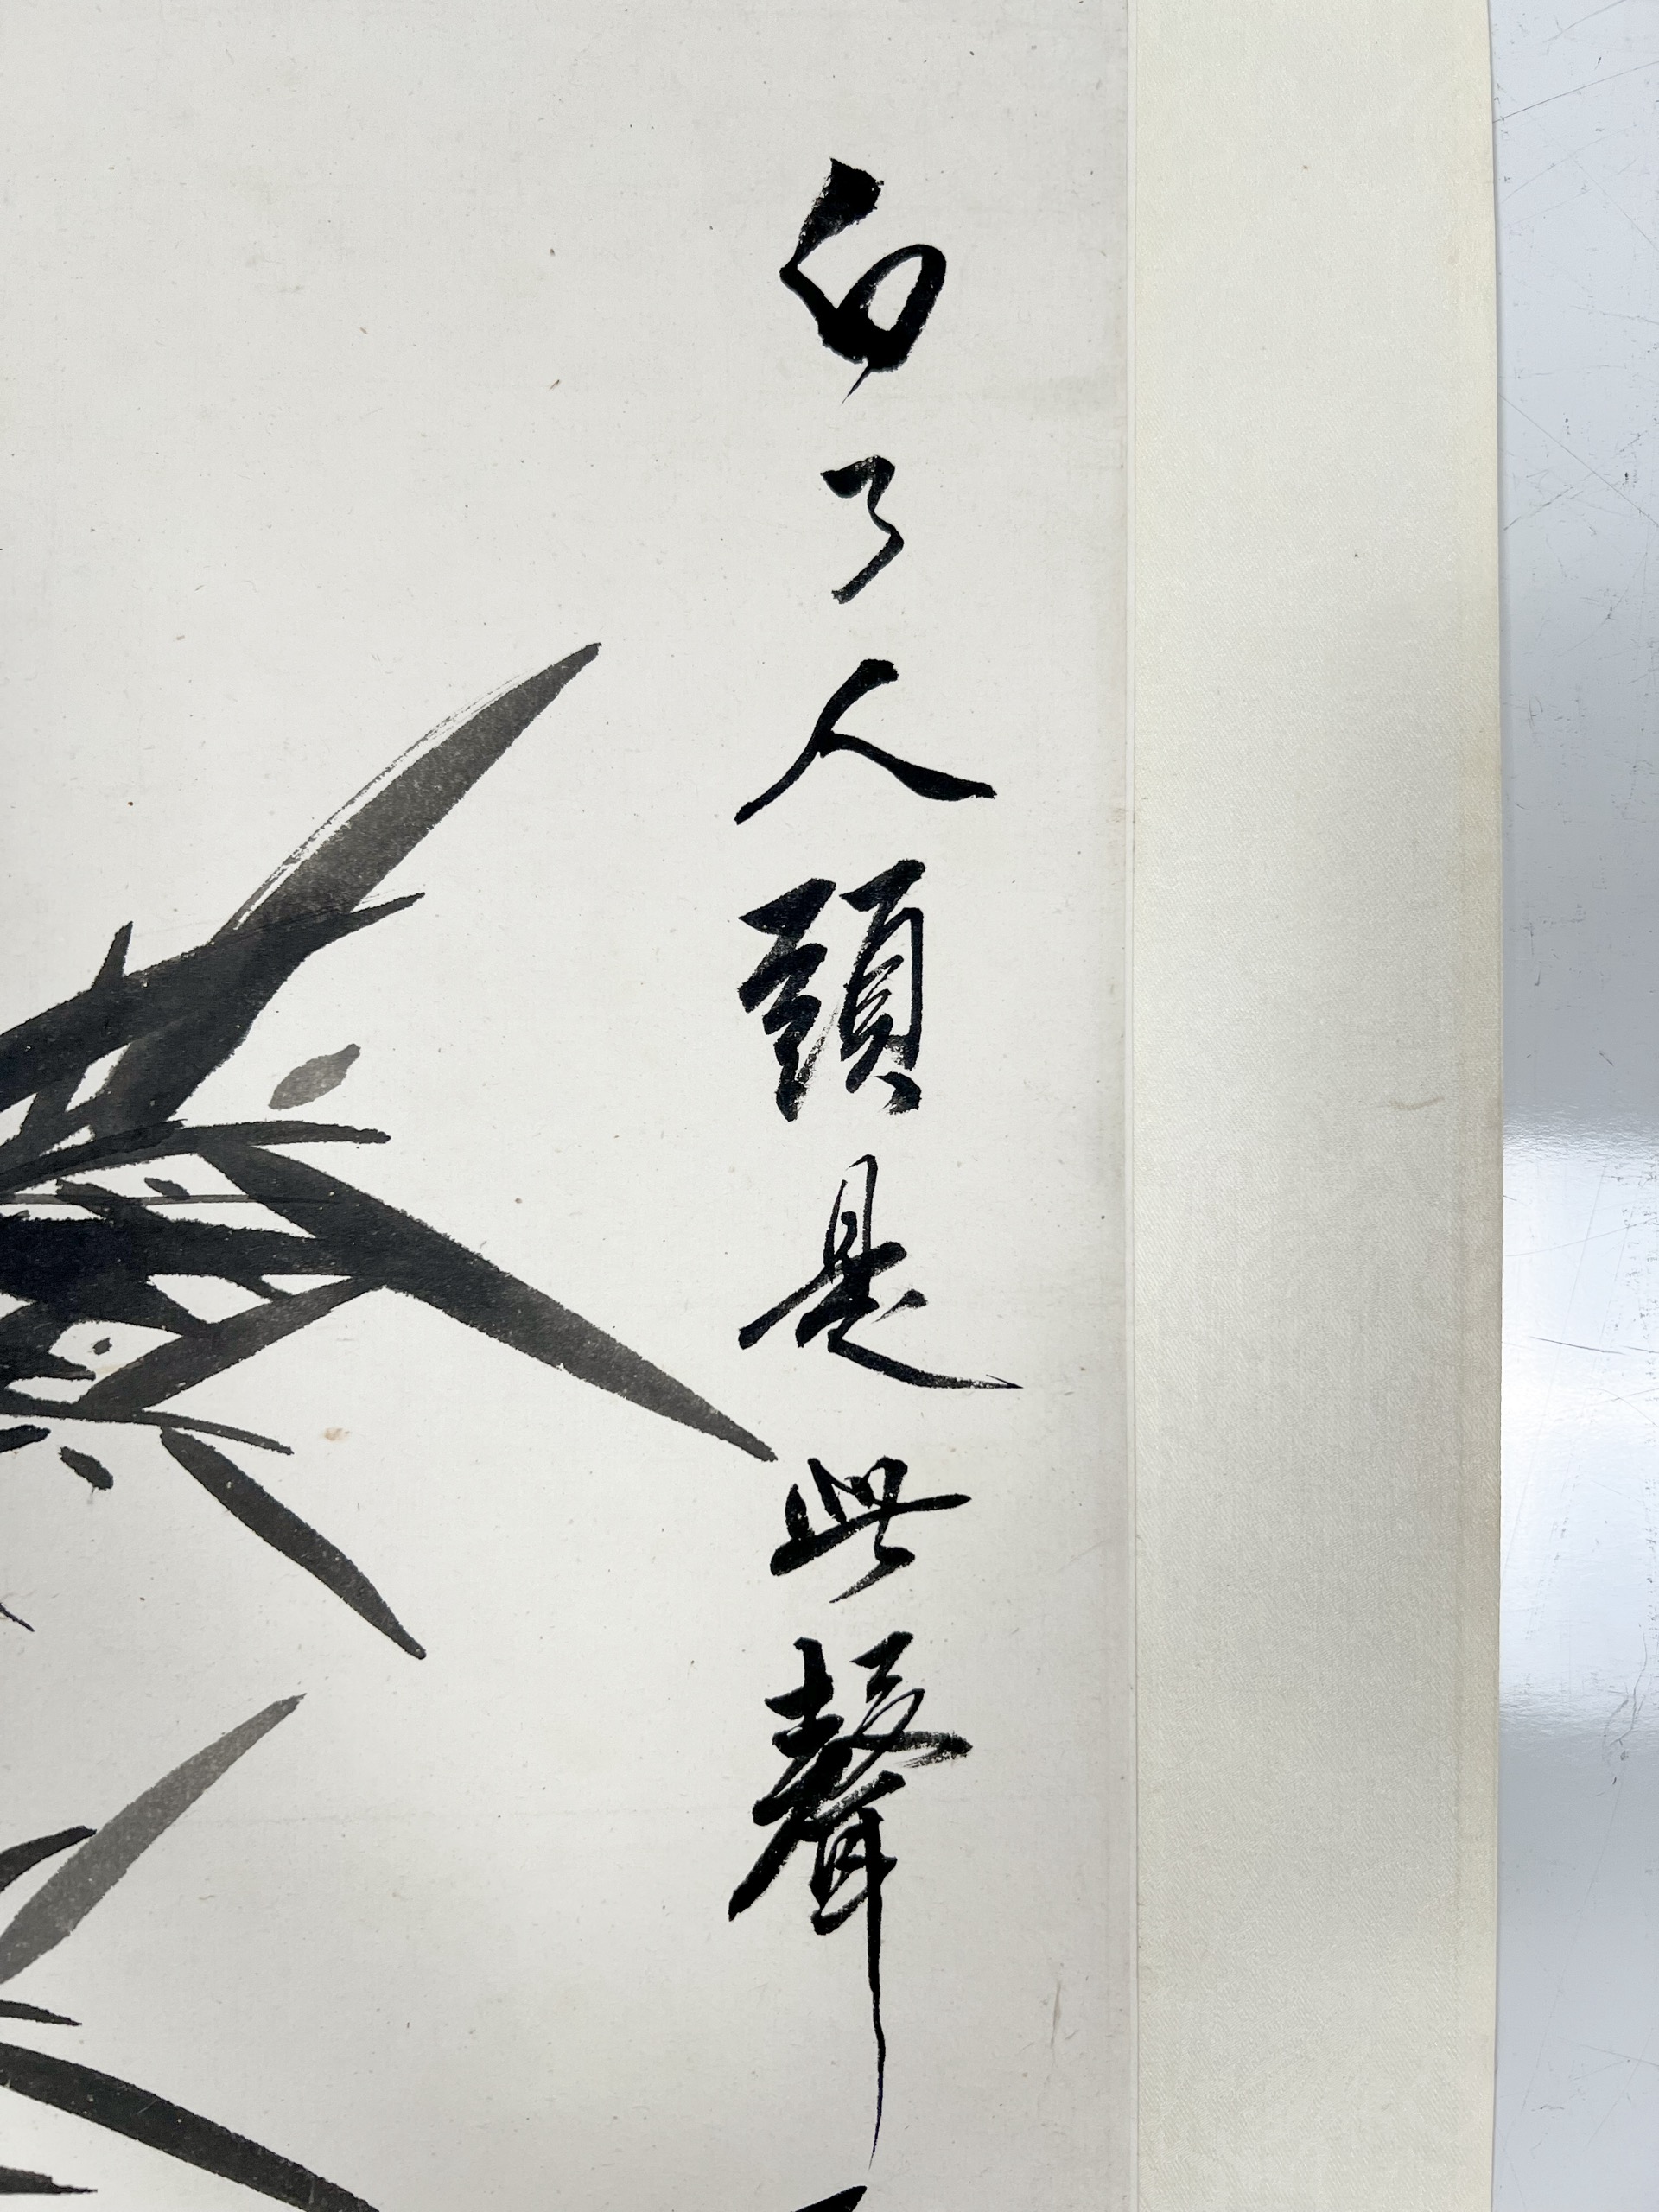 白了人頭是此聲